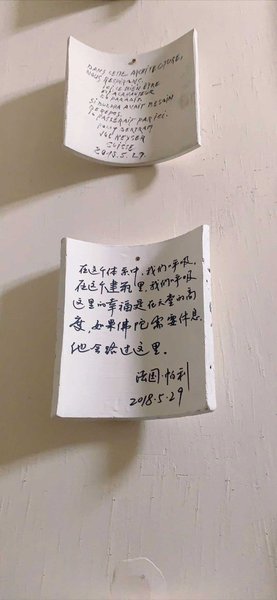 DANS CETTE ARCHITECTURE,
NOUS RESPIRONS
ICI LE BIEN ÊTRE
EST À LA HAUTEUR
DU PARADIS
SI BUDDHA AVAIT BESOIN
DE REPOS
IL PASSERAIT PAR ICI.
BERTRAM
SUISSE
2018.5.29.
在这个体系中,我们呼吸,
在这个建筑里,我们呼吸
这里的幸福是在天堂的高
度,如果佛陀需要休息
他会路过这里.
法国·帕利
2018.5.29